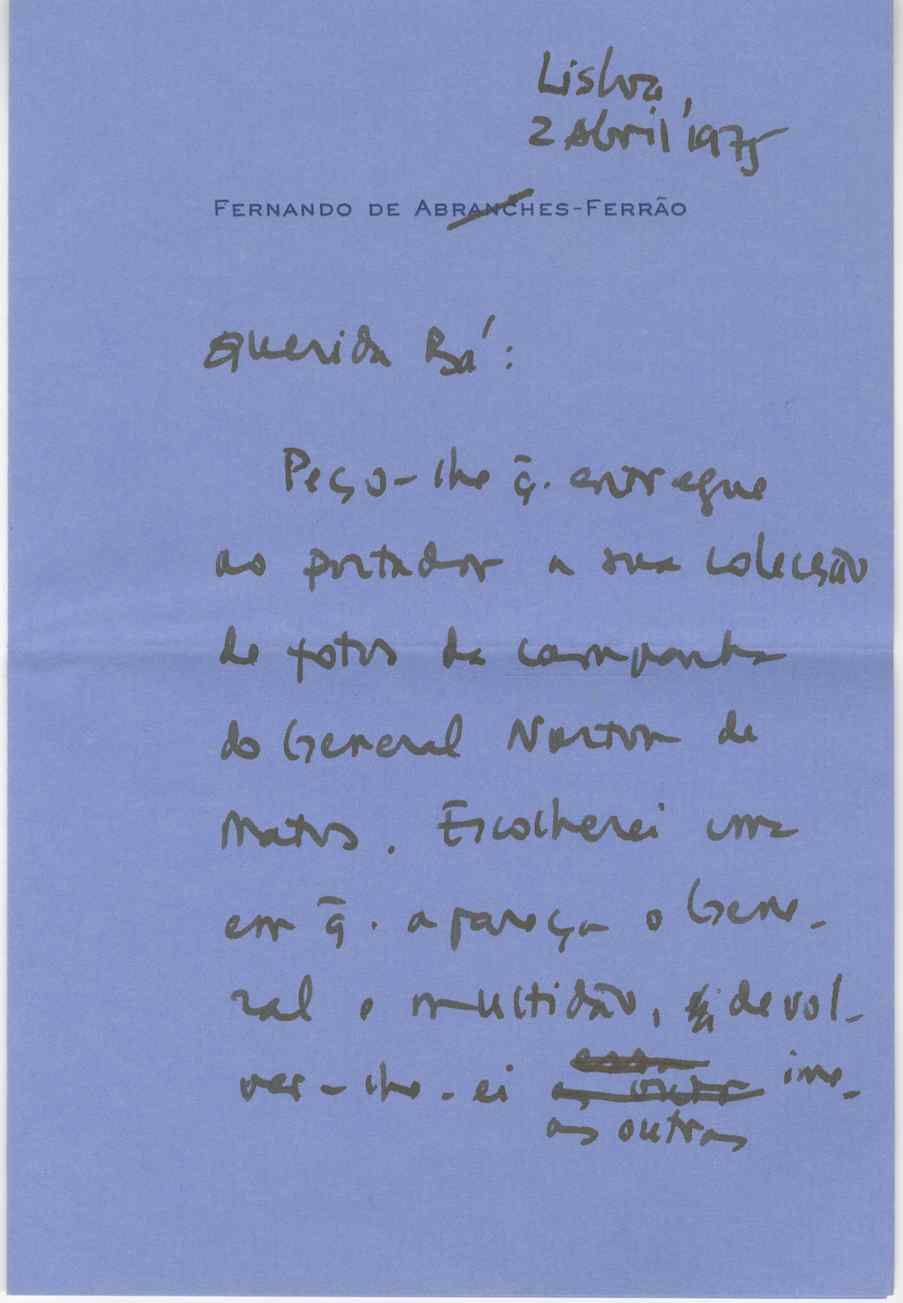 Lisboa,
2 Abril '1975
FERNANDO DE ABRANCHES-FERRÃO
Querida Bá:
Peço-lhe q̃. entregue
ao portador a sua colecção
de fotos da campanha
do General Norton de
Matos. Escolherei uma
em q̃. apareça o Gene-
ral e multidão, devol-
ver-lhe-ei ime-
as outras